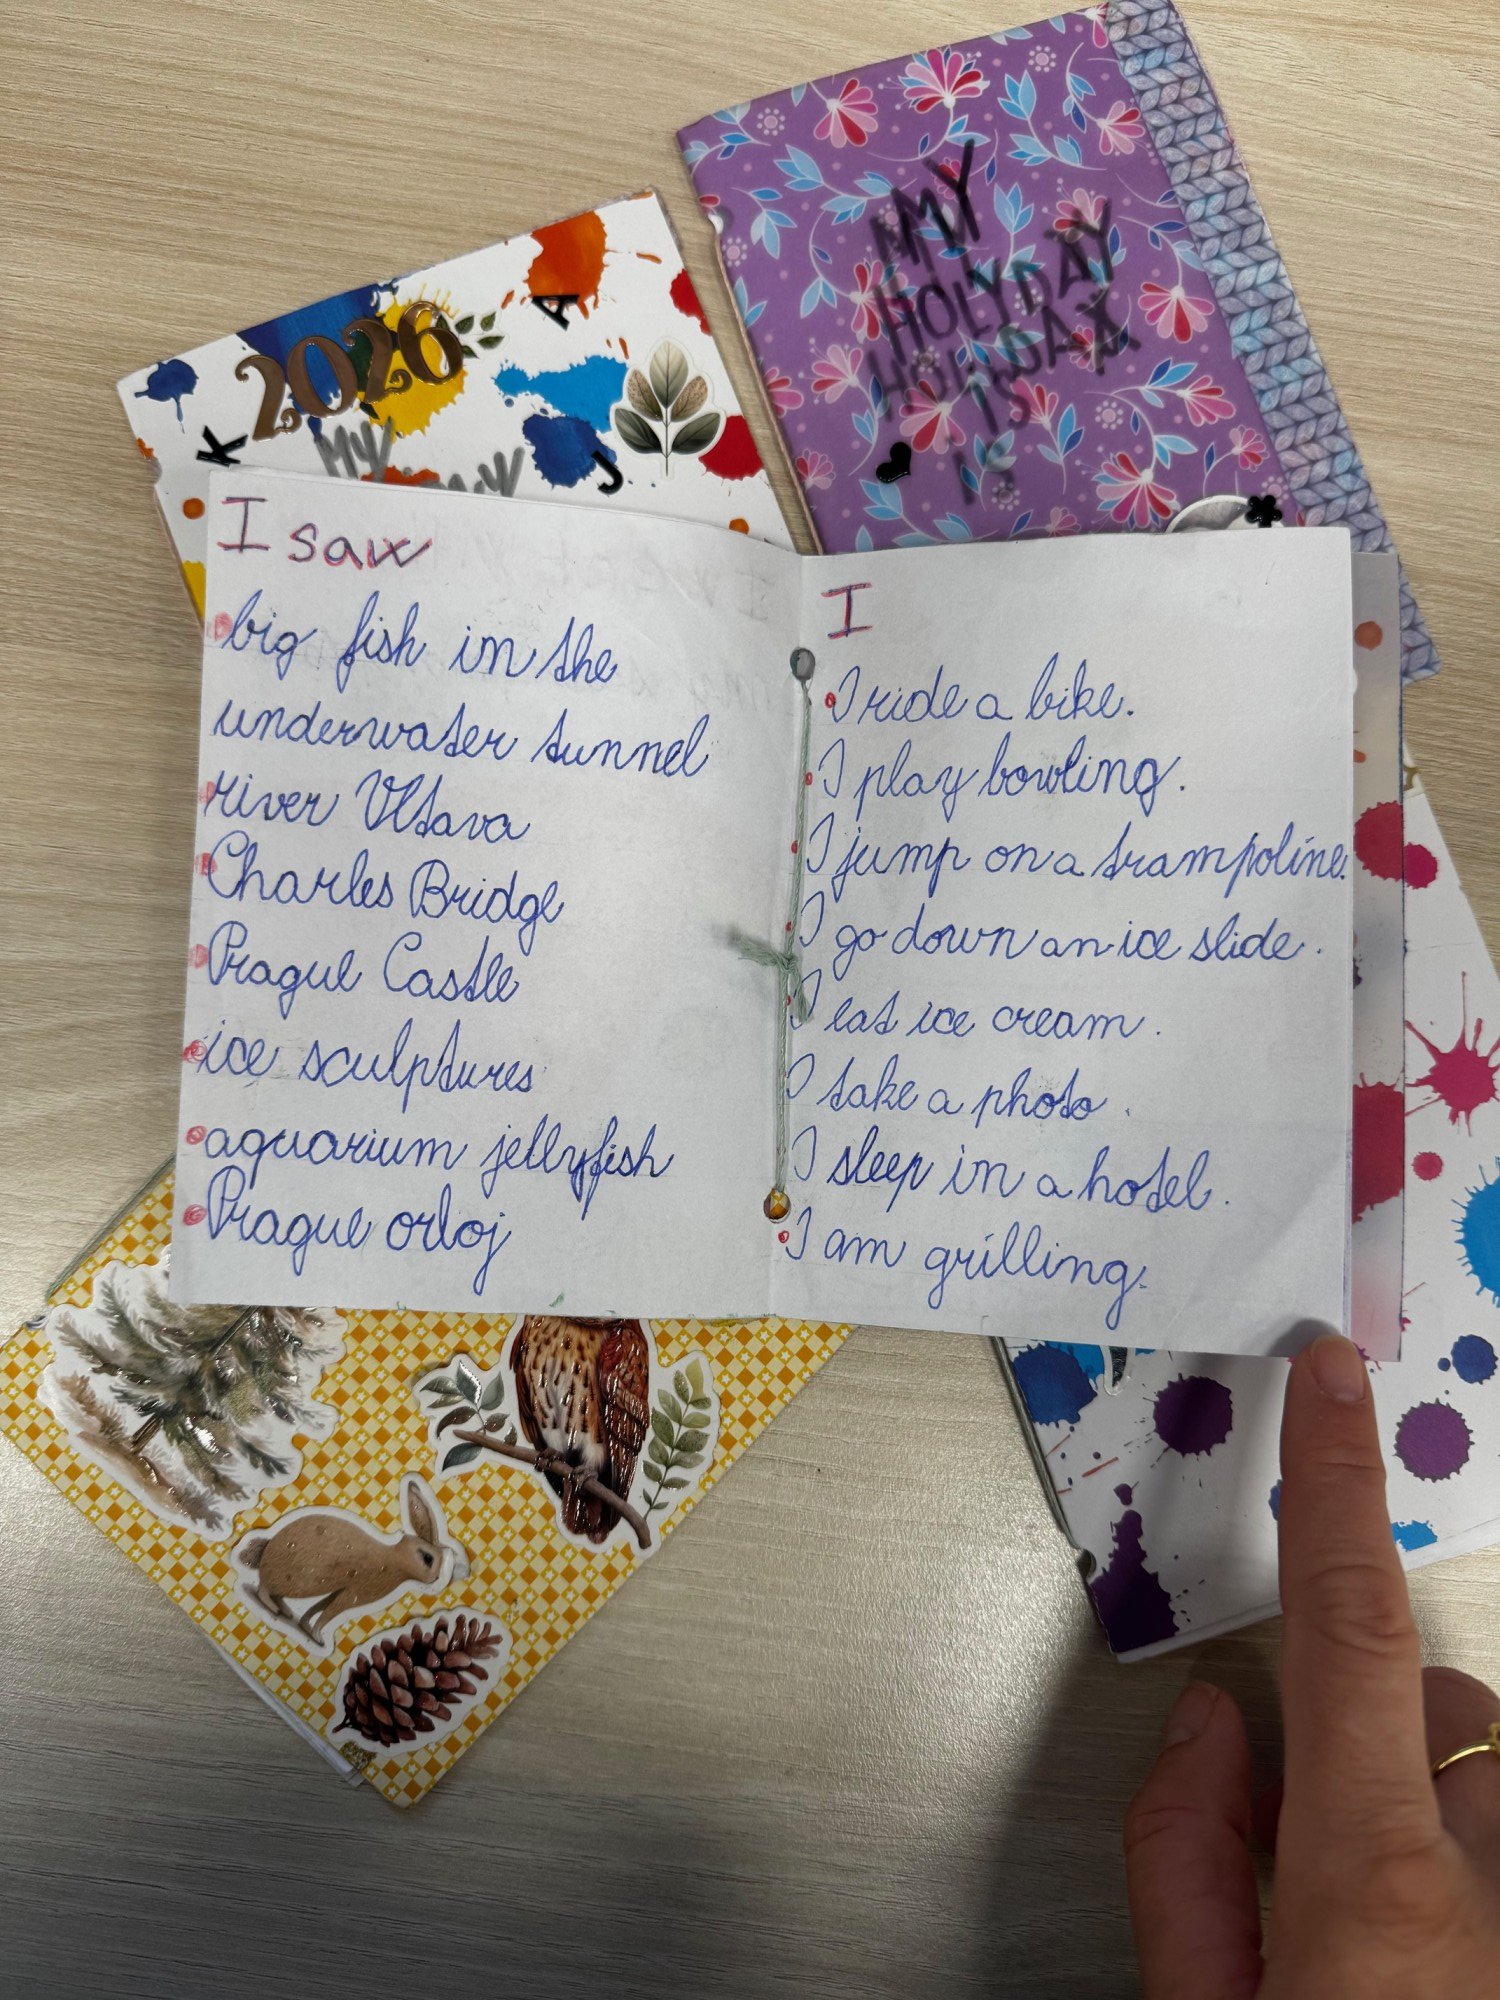 2026
A
K
J
MY
MY
HOLYDAY
HOLIDAY
IS
IS
I saw
big fish in the
underwater tunnel
river Vltava
Charles Bridge
Prague Castle
ice sculptures
aquarium jellyfish
Prague orloj
I
I ride a bike.
I play bowling.
I jump on a trampoline.
I go down an ice slide.
I eat ice cream.
I take a photo.
I sleep in a hotel.
I am grilling.